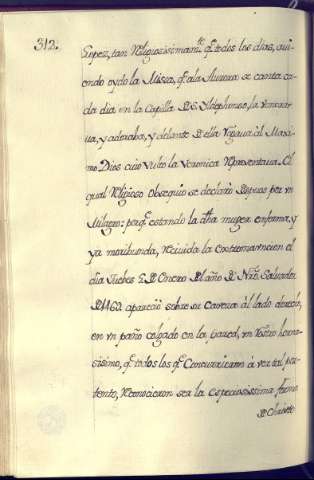 312.
Lopez, tan Religiosissimamte. qe. todos los dias, avi-
endo oydo la Missa, qe. ala Aurora se canta ca-
da dia en la Capilla D. S. Ildephonso, la venera-
va, y adoraba, y delante D ella Rogava àl Maxi-
mo Dios cuio Vulto la Veronica Representava. El
qual Religioso obsequio se declarò Despues por vn
Milagro: porqe. estando la dha muger enferma, y
ya moribunda, Recivida la extremauncion el
dia Juebes 5. D Enero Dl año D Nro. Salvador
D 1469. apareciò sobre su cavecera àl lado derecho,
en vn paño colgado en la pared, vn Rostro hermo-
sisimo, qe. todos los qe. Concurrieron à ver tal por-
tento, Reconocieron ser la especiosissima forma
D Christo